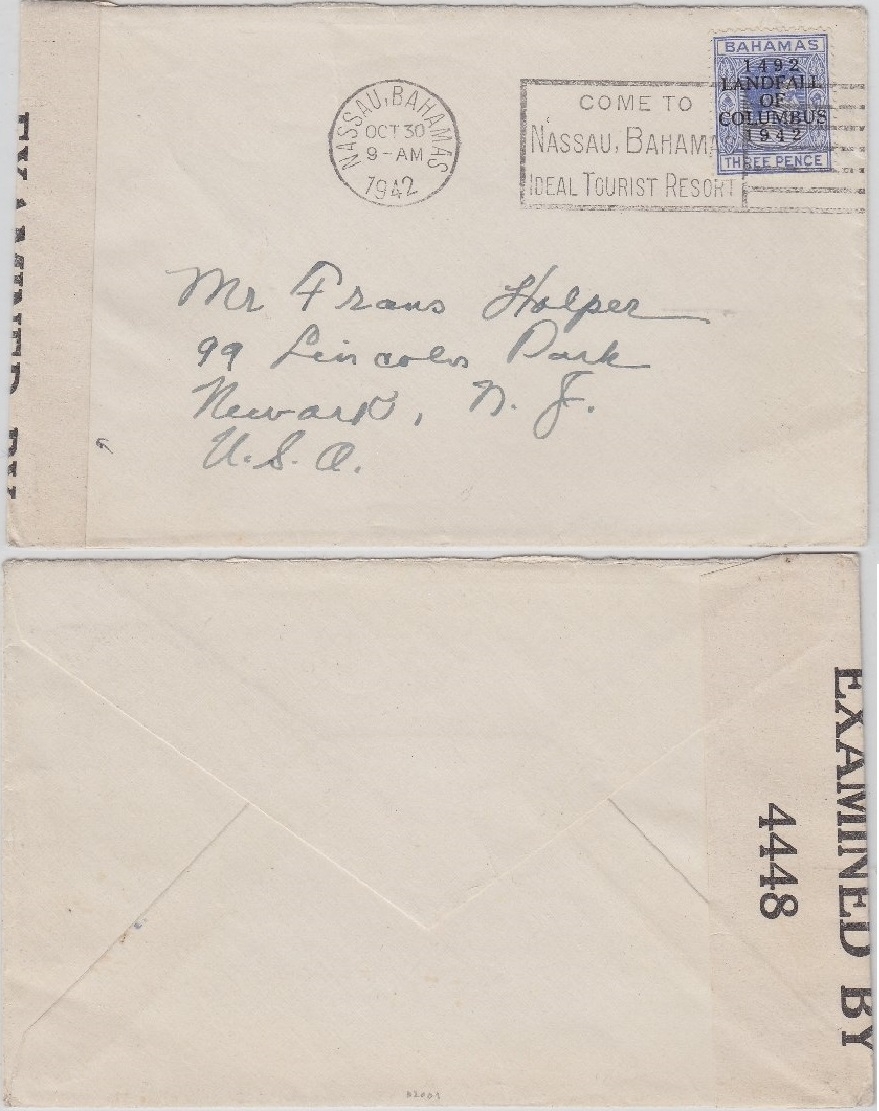 NASSAU, BAHAMAS
OCT 30
9-AM
1942
COME TO
NASSAU, BAHAMA
IDEAL TOURIST RESORT
BAHAMAS
1492
LANDFALL
OF
COLUMBUS
1942
THREE PENCE
Mr Frans Holper
99 Lincoln Park
Newark, N. J.
U.S.A.
EXAMINED BY
EXAMINED BY
4448